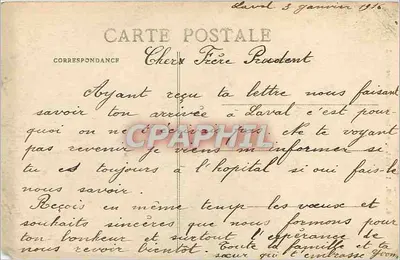 Laval 3 janvier 1916
CARTE POSTALE
CORRESPONDANCE
Cher Frère Prudent
Ayant reçu ta lettre nous faisant
savoir ton arrivée à Laval c'est pour-
quoi on ne t'écrivait pas. Ne te voyant
pas revenir je viens m'informer si
tu es toujours à l'hopital si oui fais-le
nous savoir.
Reçois en même temps les vœux et
souhaits sincères que nous formons pour
ton bonheur et surtout l'espérance de
nous revoir bientôt. Toute la famille et ta
sœur qui t'embrasse
CPAPHIL.COM